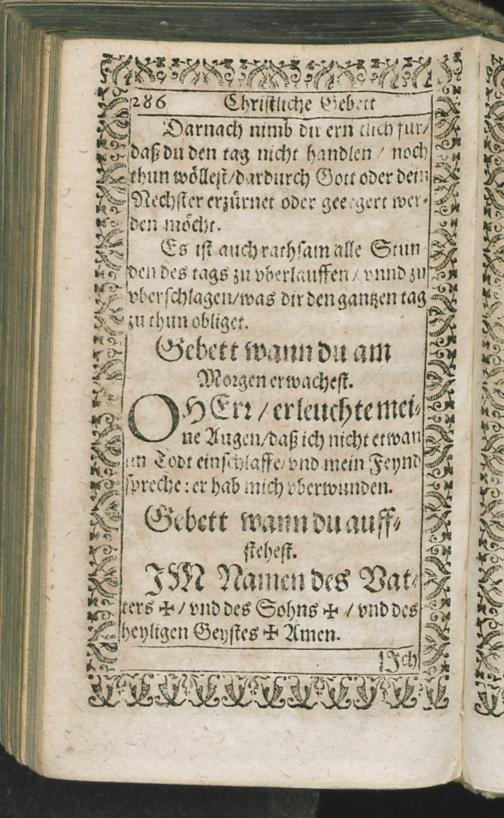 286 Christliche Gebett
Darnach nimb dir ernstlich für/
daß du den tag nicht handlen / noch
thun wöllest/dardurch Gott oder dein
Nechster erzürnet oder geergert wer-
den möcht.
Es ist auch rathsam alle Stun
den des tags zu vberlauffen / vnnd zu
vberschlagen/was dir den gantzen tag
zu thun obliget.
Gebett wann du am
Morgen erwachest.
O HErr / erleuchte mei-
ne Augen/daß ich nicht etwan
im Todt einschlaffe/vnd mein Feynd
spreche: er hab mich vberwunden.
Gebett wann du auff-
stehest.
IM Namen des Vat-
ters ✠ / vnd des Sohns ✠ / vnd des
heyligen Geystes ✠ Amen.
Ich